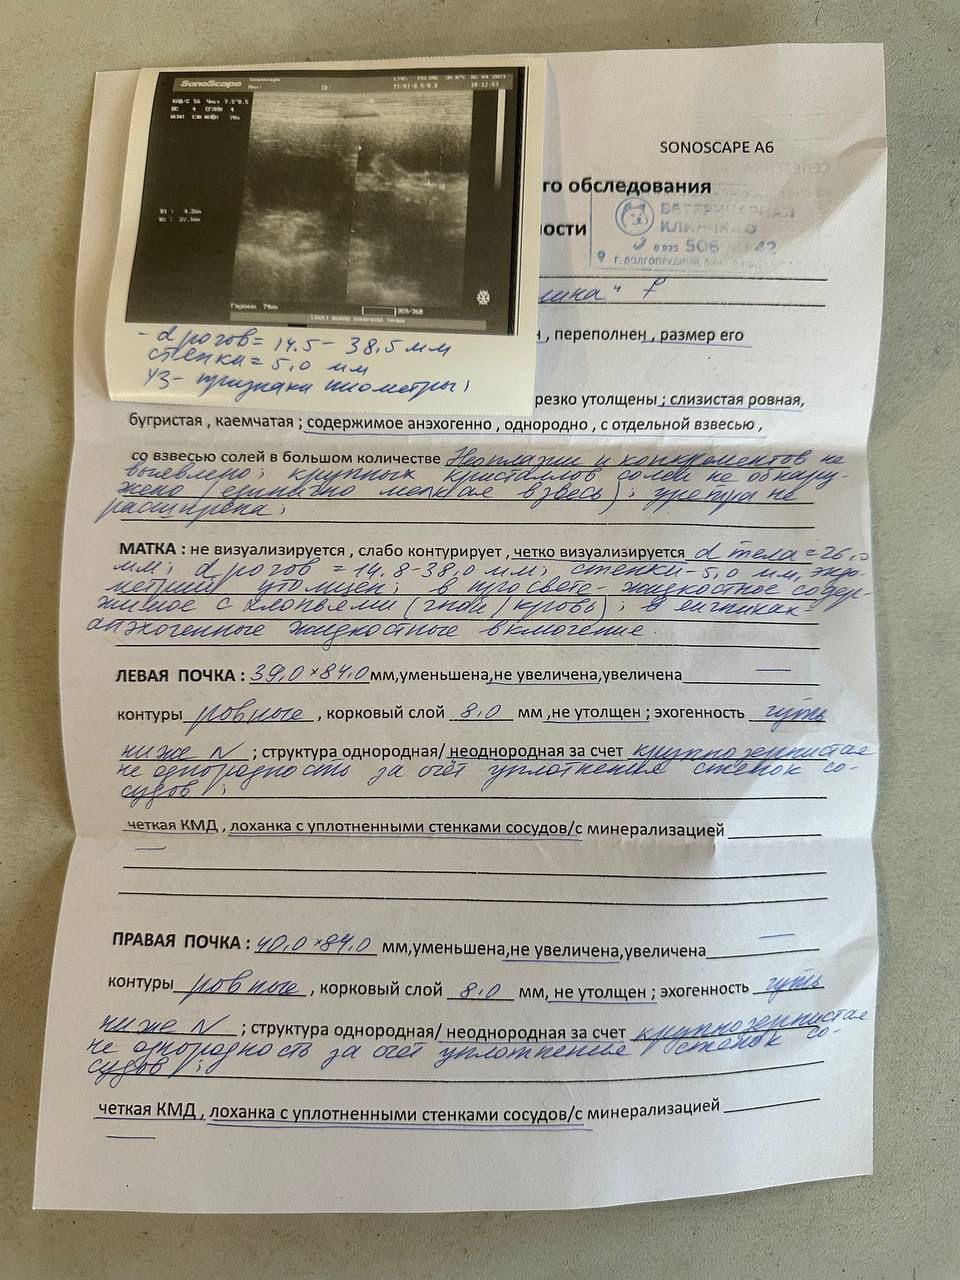 SonoScape
10:12:53
SONOSCAPE A6
го обследования
ости
ВЕТЕРИНАРНАЯ
КЛИНИКА
8 925 506
Г. ДОЛГОПРУДНЫЙ,
F
, переполнен , размер его
- d рогов = 14.5 - 38.5 мм
стенки = 5.0 мм
УЗ- признаки пиометры;
резко утолщены ; слизистая ровная,
бугристая , каемчатая ; содержимое анэхогенно , однородно , с отдельной взвесью ,
со взвесью солей в большом количестве Неоплазии и конкрементов не
выявлено; крупных кристаллов солей не обнару-
жено (единично мелкая взвесь); уретра не
расширена;
МАТКА : не визуализируется , слабо контурирует , четко визуализируется d тела = 26,0
мм; d рогов = 14.8-38.0 мм; стенки - 5.0 мм, эндо-
метрий утолщен; в просвете жидкостное содер-
жимое с хлопьями (гной/кровь); в яичниках
анэхогенные жидкостные включение
ЛЕВАЯ ПОЧКА : 39.0×84.0 мм,уменьшена,не увеличена,увеличена
контуры ровные , корковый слой 8.0 мм ,не утолщен ; эхогенность чуть
ниже N ; структура однородная/ неоднородная за счет крупнозернистая
не однородность за счёт уплотнения стенок со-
судов ;
четкая КМД , лоханка с уплотненными стенками сосудов/с минерализацией
ПРАВАЯ ПОЧКА : 40.0×84.0 мм,уменьшена,не увеличена,увеличена
контуры ровные , корковый слой 8.0 мм, не утолщен ; эхогенность чуть
ниже N ; структура однородная/ неоднородная за счет крупнозернистая
не однородность за счёт уплотнение стенок со-
судов ;
четкая КМД , лоханка с уплотненными стенками сосудов/с минерализацией